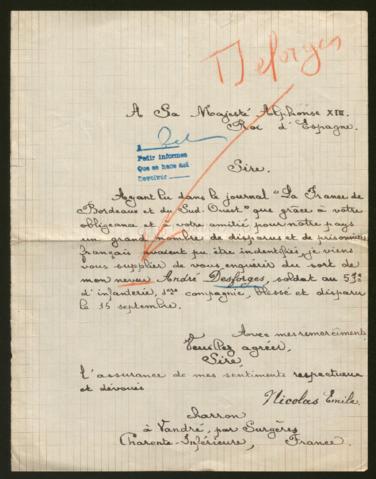 Deforges
A Sa Majesté Alphonse XIII.
Roi d'Espagne.
A
Pedir informes
Que se hace aquí
Devolver
Sire.
Ayant lu dans le journal "La France de
Bordeaux et du Sud-Ouest" que grâce à votre
obligeance et à votre amitié pour notre pays
un grand nombre de disparus et de prisonniers
français avaient pu être indentifiés, je viens
vous supplier de vous enquérir du sort de
mon neveu André Desforges, soldat au
d'infanterie, compagnie, blessé et disparu
le 15 septembre.
Avec mes remerciments,
Veuillez agréer,
Sire
l'assurance de mes sentiments respectueux
et dévoués
Nicolas Emile
charron
à Vandré, par Surgères
Charente-Inférieure, France.